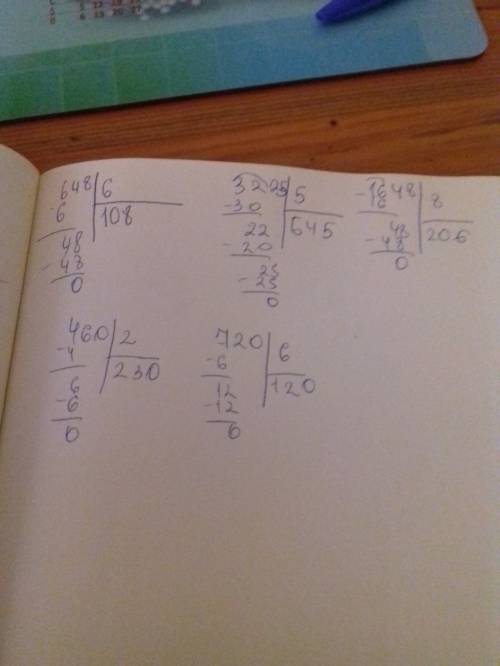 648 | 6
-6 | 108
48
-48
0
3225 | 5
-30 | 645
22
-20
25
-25
0
-1648 | 8
16 | 206
48
-48
0
460 | 2
-4 | 230
6
-6
0
720 | 6
-6 | 120
12
-12
0